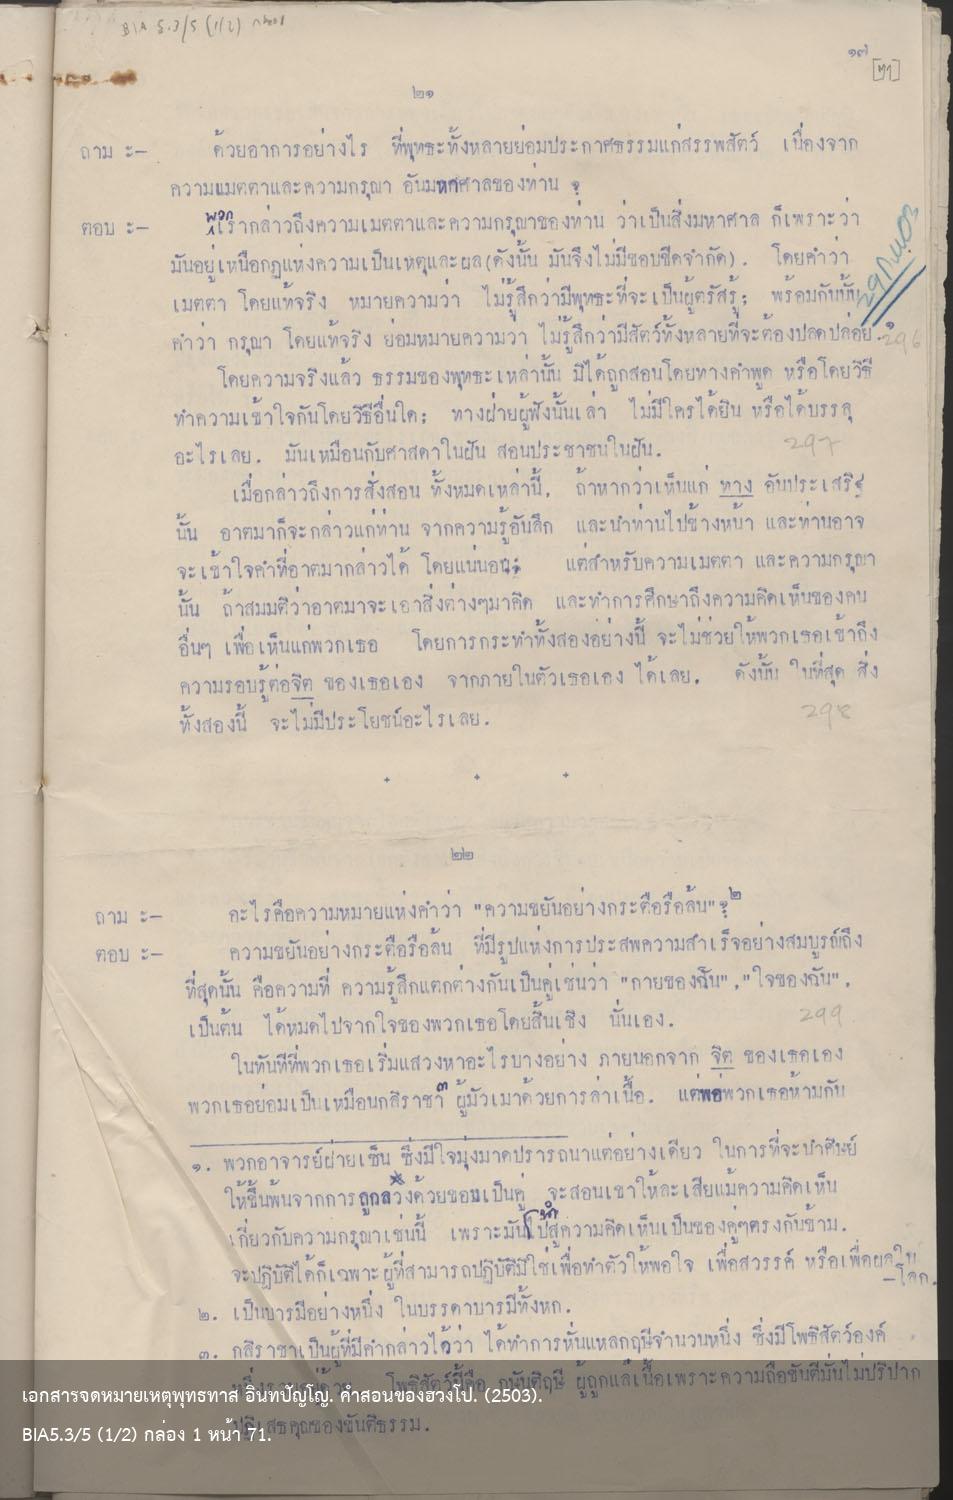 BIA 5.3/5 (1/2) กล่อง1
๑๗
[71]
๒๑
ถาม ะ- ด้วยอาการอย่างไร ที่พุทธะทั้งหลายย่อมประกาศธรรมแก่สรรพสัตว์ เนื่องจาก
ความเมตตาและความกรุณา อันมหาศาลของท่าน ?
ตอบ ะ- พวกเรากล่าวถึงความเมตตาและความกรุณาของท่าน ว่าเป็นสิ่งมหาศาล ก็เพราะว่า
มันอยู่เหนือกฎแห่งความเป็นเหตุและผล(ดังนั้น มันจึงไม่มีขอบขีดจำกัด). โดยคำว่า
เมตตา โดยแท้จริง หมายความว่า ไม่รู้สึกว่ามีพุทธะที่จะเป็นผู้ตรัสรู้; พร้อมกันนั้น
คำว่า กรุณา โดยแท้จริง ย่อมหมายความว่า ไม่รู้สึกว่ามีสัตว์ทั้งหลายที่จะต้องปลดปล่อย.๑
296
โดยความจริงแล้ว ธรรมของพุทธะเหล่านั้น มิได้ถูกสอนโดยทางคำพูด หรือโดยวิธี
ทำความเข้าใจกันโดยวิธีอื่นใด; ทางฝ่ายผู้ฟังนั้นเล่า ไม่มีใครได้ยิน หรือได้บรรลุ
อะไรเลย. มันเหมือนกับศาสดาในฝัน สอนประชาชนในฝัน.
297
เมื่อกล่าวถึงการสั่งสอน ทั้งหมดเหล่านี้, ถ้าหากว่าเห็นแก่ ทาง อันประเสริฐ
นั้น อาตมาก็จะกล่าวแก่ท่าน จากความรู้อันลึก และนำท่านไปข้างหน้า และท่านอาจ
จะเข้าใจคำที่อาตมากล่าวได้ โดยแน่นอน; แต่สำหรับความเมตตา และความกรุณา
นั้น ถ้าสมมติว่าอาตมาจะเอาสิ่งต่างๆมาคิด และทำการศึกษาถึงความคิดเห็นของคน
อื่นๆ เพื่อเห็นแก่พวกเธอ โดยการกระทำทั้งสองอย่างนี้ จะไม่ช่วยให้พวกเธอเข้าถึง
ความรอบรู้ต่อจิต ของเธอเอง จากภายในตัวเธอเอง ได้เลย. ดังนั้น ในที่สุด สิ่ง
ทั้งสองนี้ จะไม่มีประโยชน์อะไรเลย.
298
๒๒
ถาม ะ- อะไรคือความหมายแห่งคำว่า "ความขยันอย่างกระตือรือล้น"?๒
ตอบ ะ- ความขยันอย่างกระตือรือล้น ที่มีรูปแห่งการประสพความสำเร็จอย่างสมบูรณ์ถึง
ที่สุดนั้น คือความที่ ความรู้สึกแตกต่างกันเป็นคู่เช่นว่า "กายของฉัน","ใจของฉัน",
เป็นต้น ได้หมดไปจากใจของพวกเธอโดยสิ้นเชิง นั่นเอง.
299
ในทันทีที่พวกเธอเริ่มแสวงหาอะไรบางอย่าง ภายนอกจาก จิต ของเธอเอง
พวกเธอย่อมเป็นเหมือนกสิราชา๓ ผู้มัวเมาด้วยการล่าเนื้อ. แต่พอพวกเธอห้ามกัน
๑. พวกอาจารย์ฝ่ายเซ็น ซึ่งมีใจมุ่งมาดปรารถนาแต่อย่างเดียว ในการที่จะนำศิษย์
ให้ขึ้นพ้นจากการถูกลวงด้วยของเป็นคู่ จะสอนเขาให้ละเสียแม้ความคิดเห็น
เกี่ยวกับความกรุณาเช่นนี้ เพราะมันนำไปสู่ความคิดเห็นเป็นของคู่ๆตรงกันข้าม.
จะปฏิบัติได้ก็เฉพาะผู้ที่สามารถปฏิบัติมิใช่เพื่อทำตัวให้พอใจ เพื่อสวรรค์ หรือเพื่อผลใน
-โลก.
๒. เป็นบารมีอย่างหนึ่ง ในบรรดาบารมีทั้งหก.
๓. กสิราชาเป็นผู้ที่มีคำกล่าวไว้ว่า ได้ทำการหั่นแหลกฤษีจำนวนหนึ่ง ซึ่งมีโพธิสัตว์องค์
โพธิสัตว์นี้คือ ขันติฤษี ผู้ถูกแล่เนื้อเพราะความถือขันติมั่นไม่ปริปาก
ปฏิเสธคุณของขันติธรรม.
เอกสารจดหมายเหตุพุทธทาส อินทปัญโญ. คำสอนของฮวงโป. (2503).
BIA5.3/5 (1/2) กล่อง 1 หน้า 71.